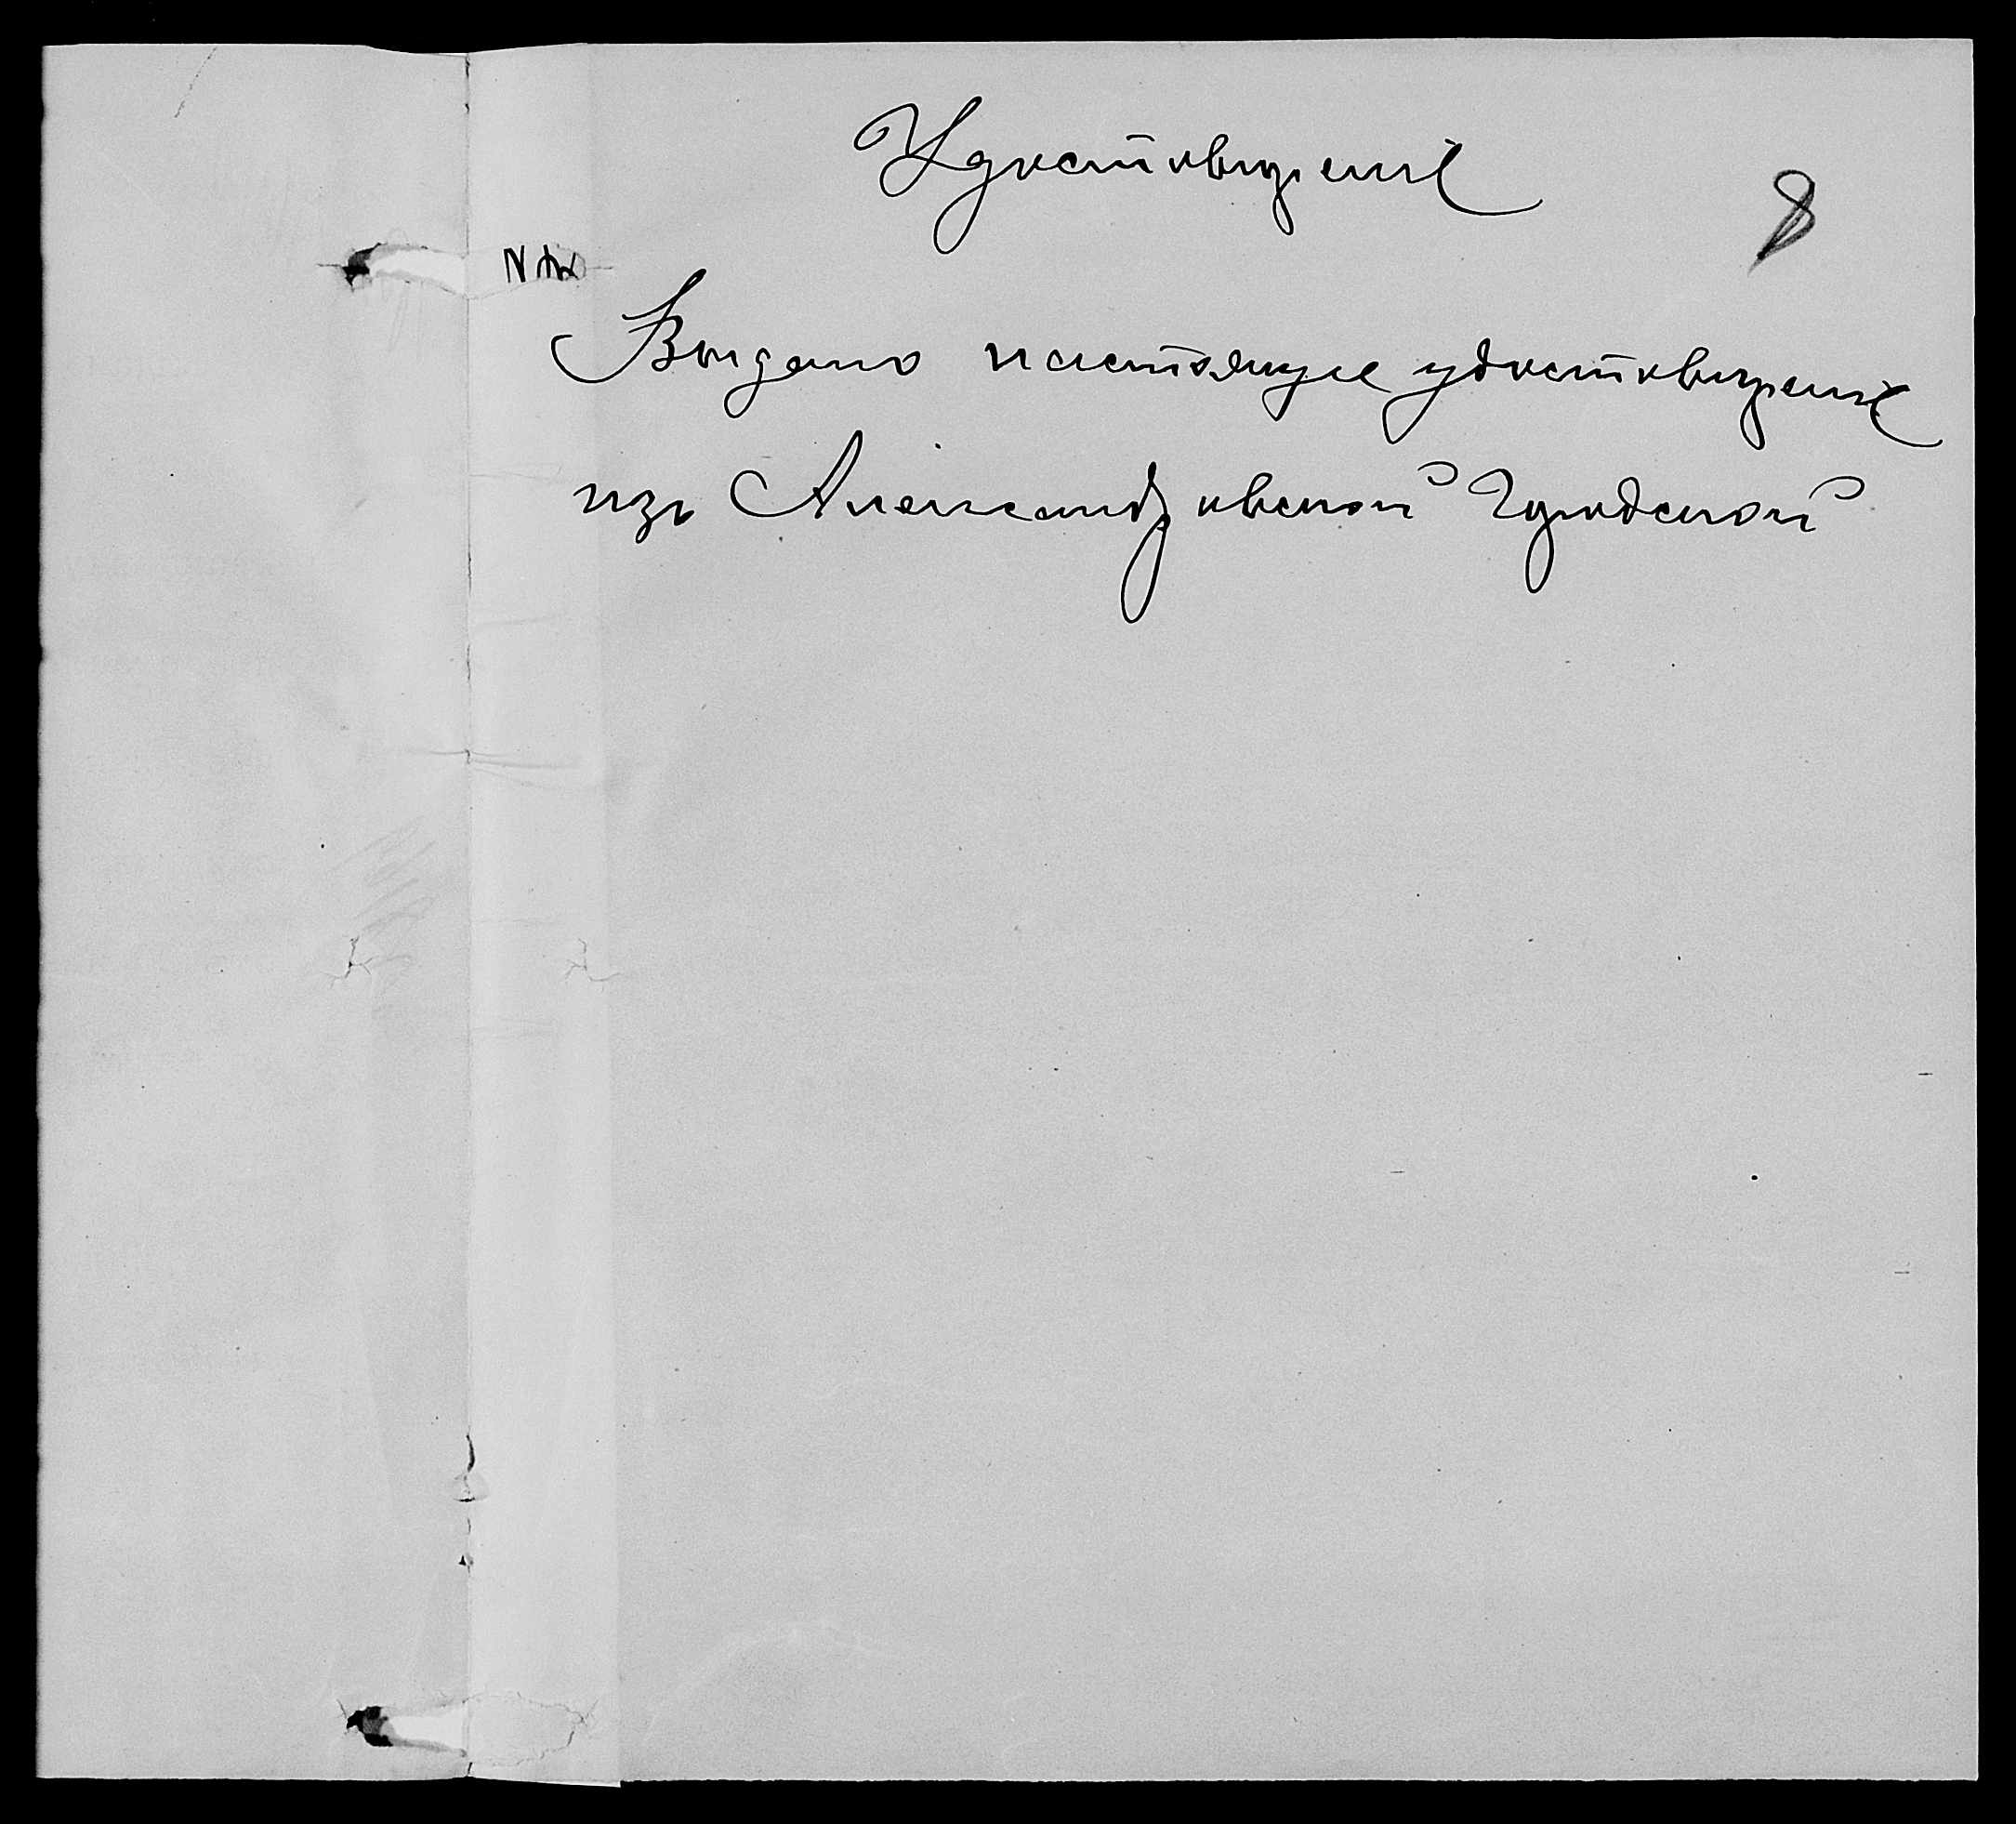 Удостовѣреніе
8
Выдано настоящее удостовѣреніе
изъ Александровской Городской